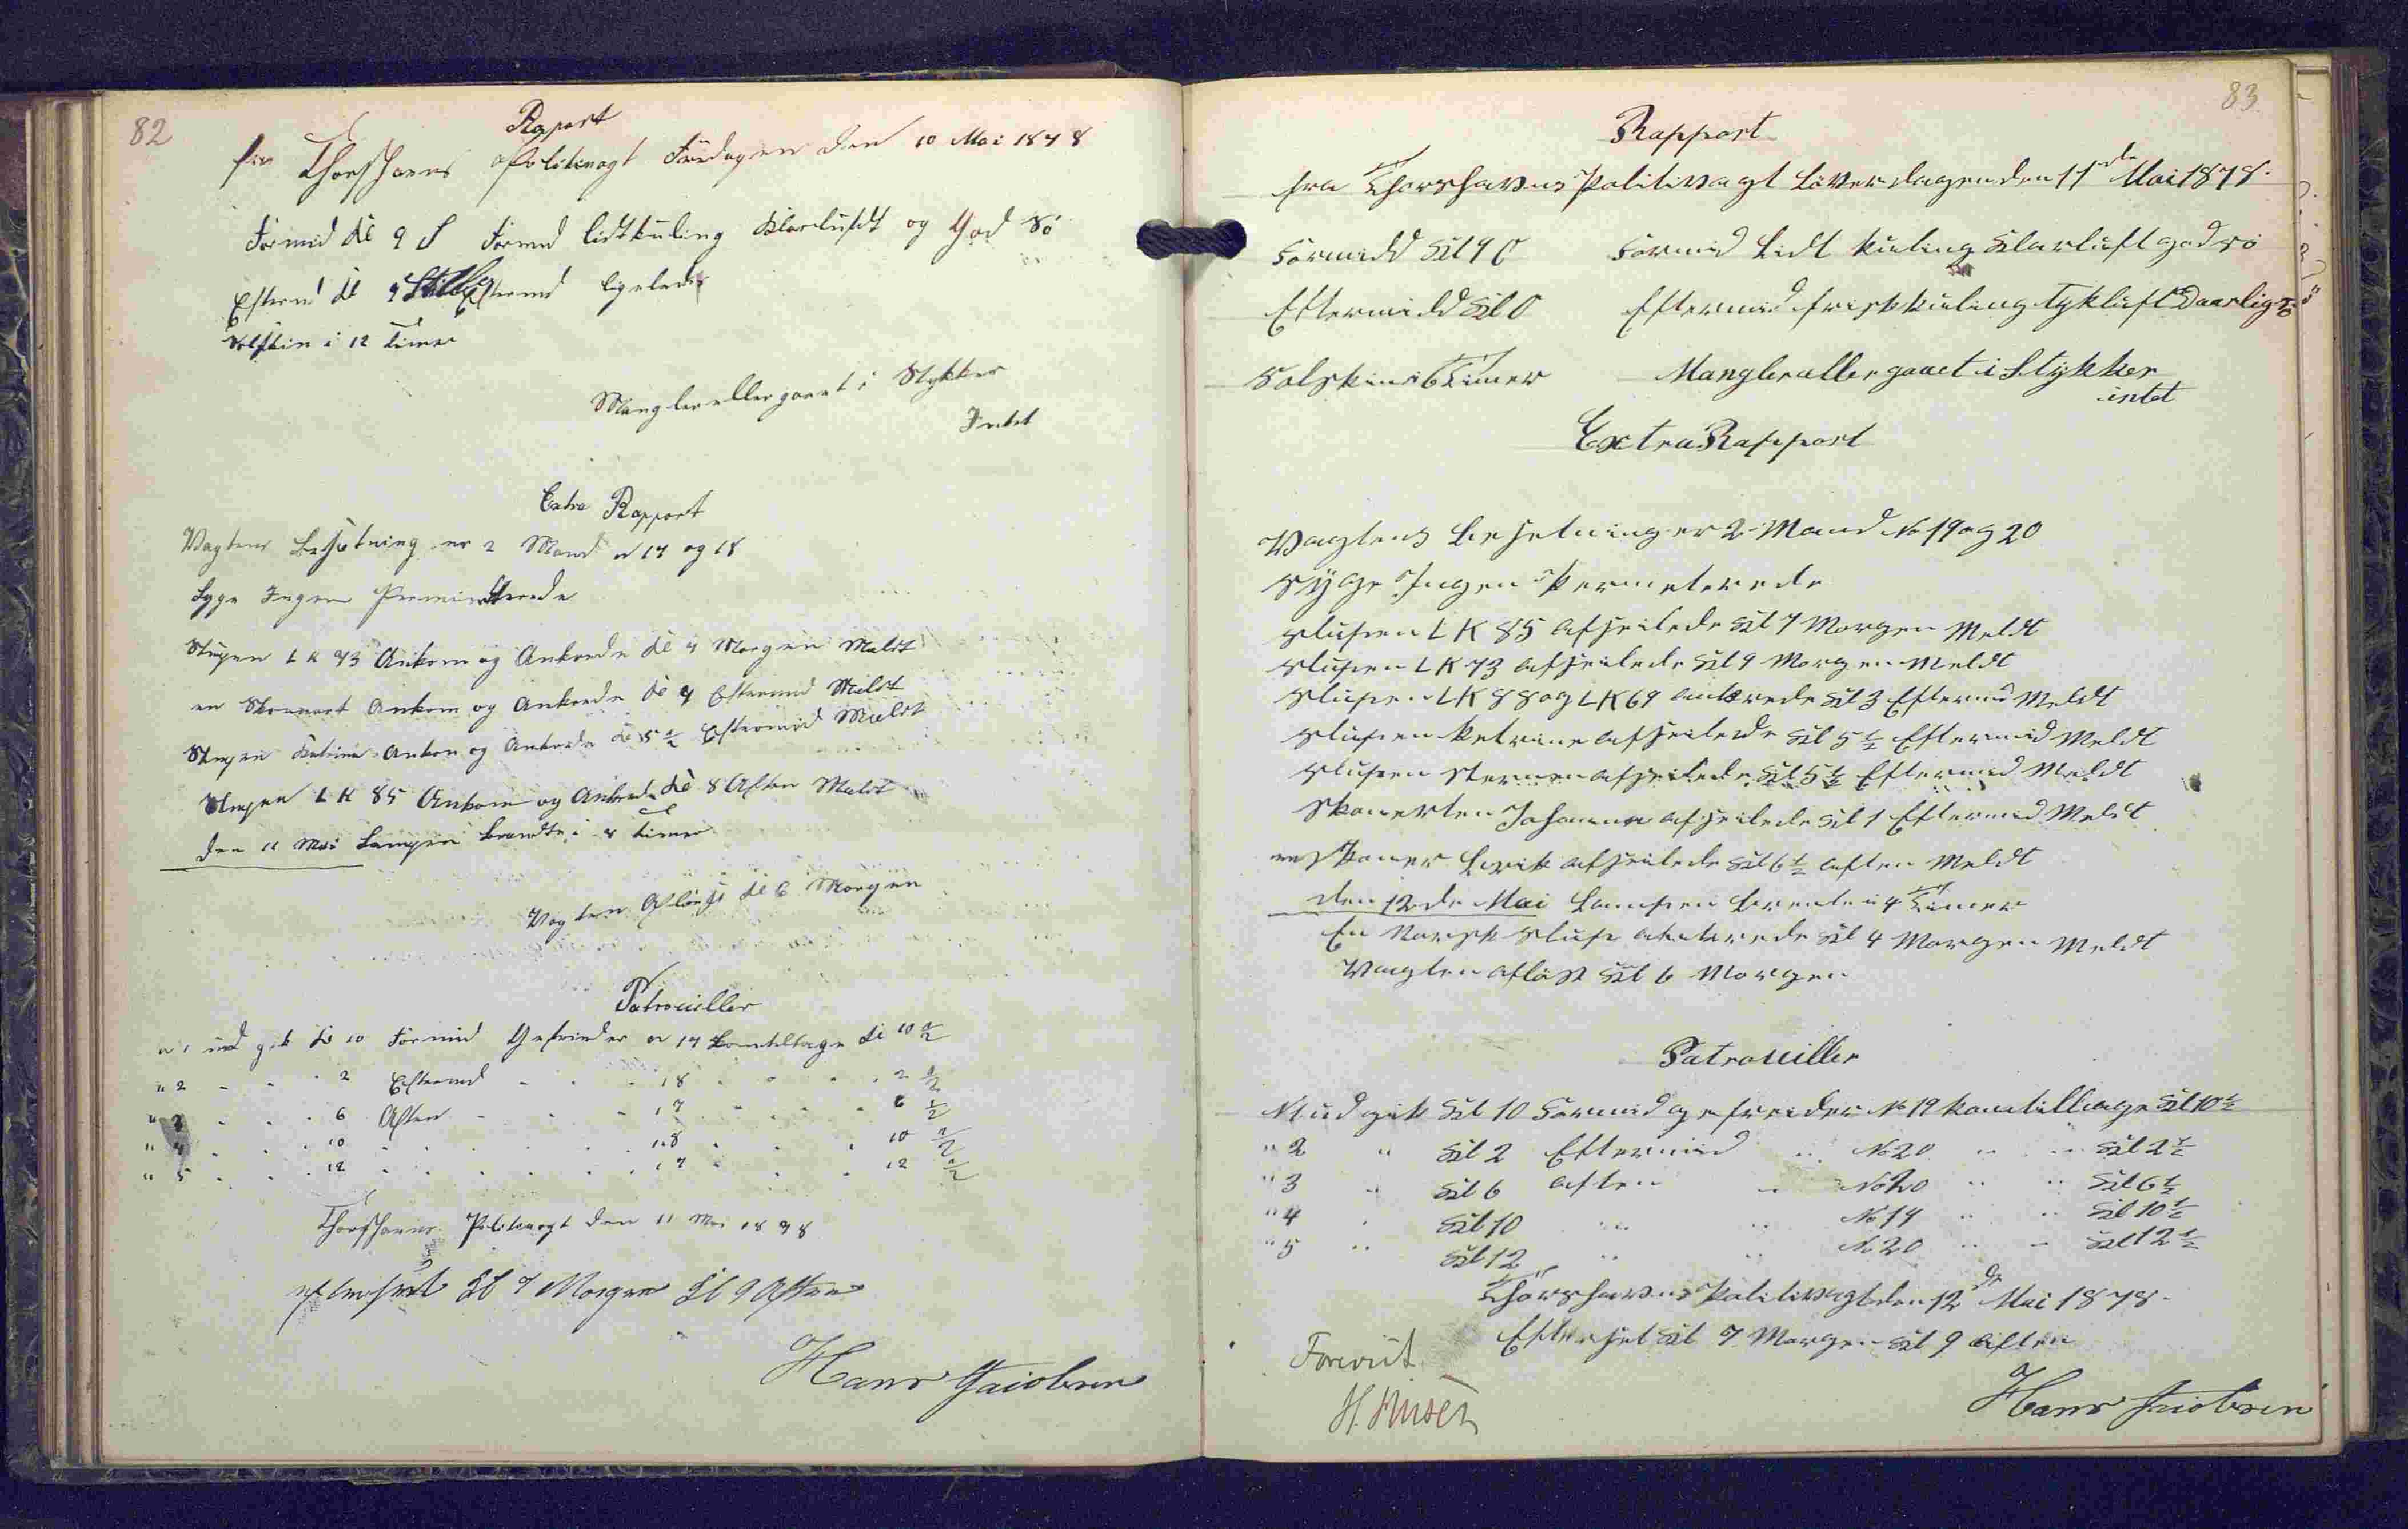 82
Rapport
fra Thorshavns Politivagt Fredagen den 10 Mai 1878
Formid Kl 9 S Formd lidt kuling Klarluft og God Sö
Efterm Kl 9 Stille Eftermd ligeledes
Solskin i 12 Timer
Mangler eller gaaet i Stykker
Intet
Extra Rapport
Vagtens Besætning er 2 Mand N 17 og 18
Syge Ingen
Slupen L K 73 Ankom og Ankrede Kl 4 Morgen Meldt
en Skonnert Ankom og Ankrede Kl 4 Eftermd Meldt
Slupen Katrine Ankom og Ankrede Kl 5 1/2 Eftermid Meldt
Slupen L K 85 Ankom og Ankrede Kl 8 Aften Meldt
den 11 Mai Lampen brændte i 4 Timer
Vagten Aflöst Kl 6 Morgen
Patrouiller
N 1 ud gik Kl 10 Formid Gefreider N 17 kom tilbage Kl 10 1/2
" 2 - - - 2 Eftermd - - - 18 - - - 2 1/2
" 3 - - - 6 Aften - - - 17 - - - 6 1/2
" 4 - - - 10 - - - 18 - - - 10 1/2
" 5 - - - 12 - - - 17 - - - 12 1/2
Thorshavns Politivagt den 11 Mai 1878
efterset Kl 7 Morgen Kl 9 Aften
Hans Jacobsen
83
Rapport
fra Thorshavns Politivagt Löverdagen den 11de Mai 1878.
Formidd Kl 9 0 Formid Lidt kuling Klarluft god sö
Eftermidd Kl 0 Eftermid frisk kuling Tykluft Daarlig sö
Solskin i 6 Timer Mangler eller gaaet i Stykker
intet
Extra Rapport
Vagtens besetning er 2 Mand No 19 og 20
Syge Ingen Permeterede
Slupen L K 85 afseilede Kl 7 Morgen Meldt
Slupen L K 73 afseilede Kl 9 Morgen Meldt
Slupen L K 88 og L K 69 ankrede Kl 3 Eftermid Meldt
Slupen Ketrine afseilede Kl 5 1/2 Eftermid Meldt
Slupen Sternen afseilede Kl 5 1/2 Eftermid Meldt
Skonerten Johanna afseilede Kl 1 Eftermid Meldt
en Skoner brik afseilede Kl 6 1/2 aften Meldt
den 12de Mai Lampen brente i 4 Timer
En Norsk Slup ankrede Kl 4 Morgen Meldt
Vagten aflöst Kl 6 Morgen
Patrouiller
N 1 ud gik Kl 10 Formid gefreider No 19 kom tilbage Kl 10 1/2
" 2 " Kl 2 Eftermid " No 20 " " Kl 2 1/2
" 3 " Kl 6 aften " No 20 " " Kl 6 1/2
" 4 " Kl 10 " " No 19 " " Kl 10 1/2
" 5 " Kl 12 " " N 20 " " Kl 12 1/2
Thorshavns Politivagt den 12de Mai 1878.
Efterset Kl 7 Morgen Kl 9 aften
Forevist
Hans Jacobsen